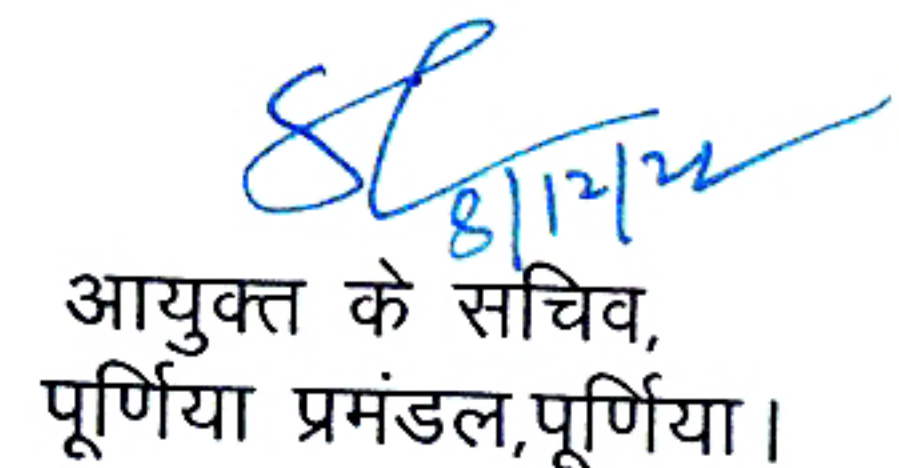 8/12/22
आयुक्त के सचिव,
पूर्णिया प्रमंडल,पूर्णिया।